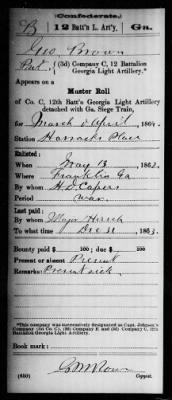 Confederate.
B 12 Batt'n L. Art'y, Ga.
Geo Brown
Pvt., (3d) Company C, 12 Battalion
Georgia Light Artillery.*
Appears on a
Muster Roll
of Co. C, 12th Batt'n Georgia Light Artillery
detached with Ga. Siege Train,
for March & April, 1864.
Station Place
Enlisted:
When May 13, 1862.
Where Franklin Ga
By whom H. D. Capers
Period war
Last paid:
By whom Major Hirsch
To what time Dec 31, 1863.
Bounty paid $ 100; due $ 100
Present or absent Present
Remarks: Present sick
*This company was successively designated as Capt. Johnson's
Company (3d) Company E and (3d) Company C, 12th
Battalion Georgia Light Artillery.
Book mark:
(650) Copyist.